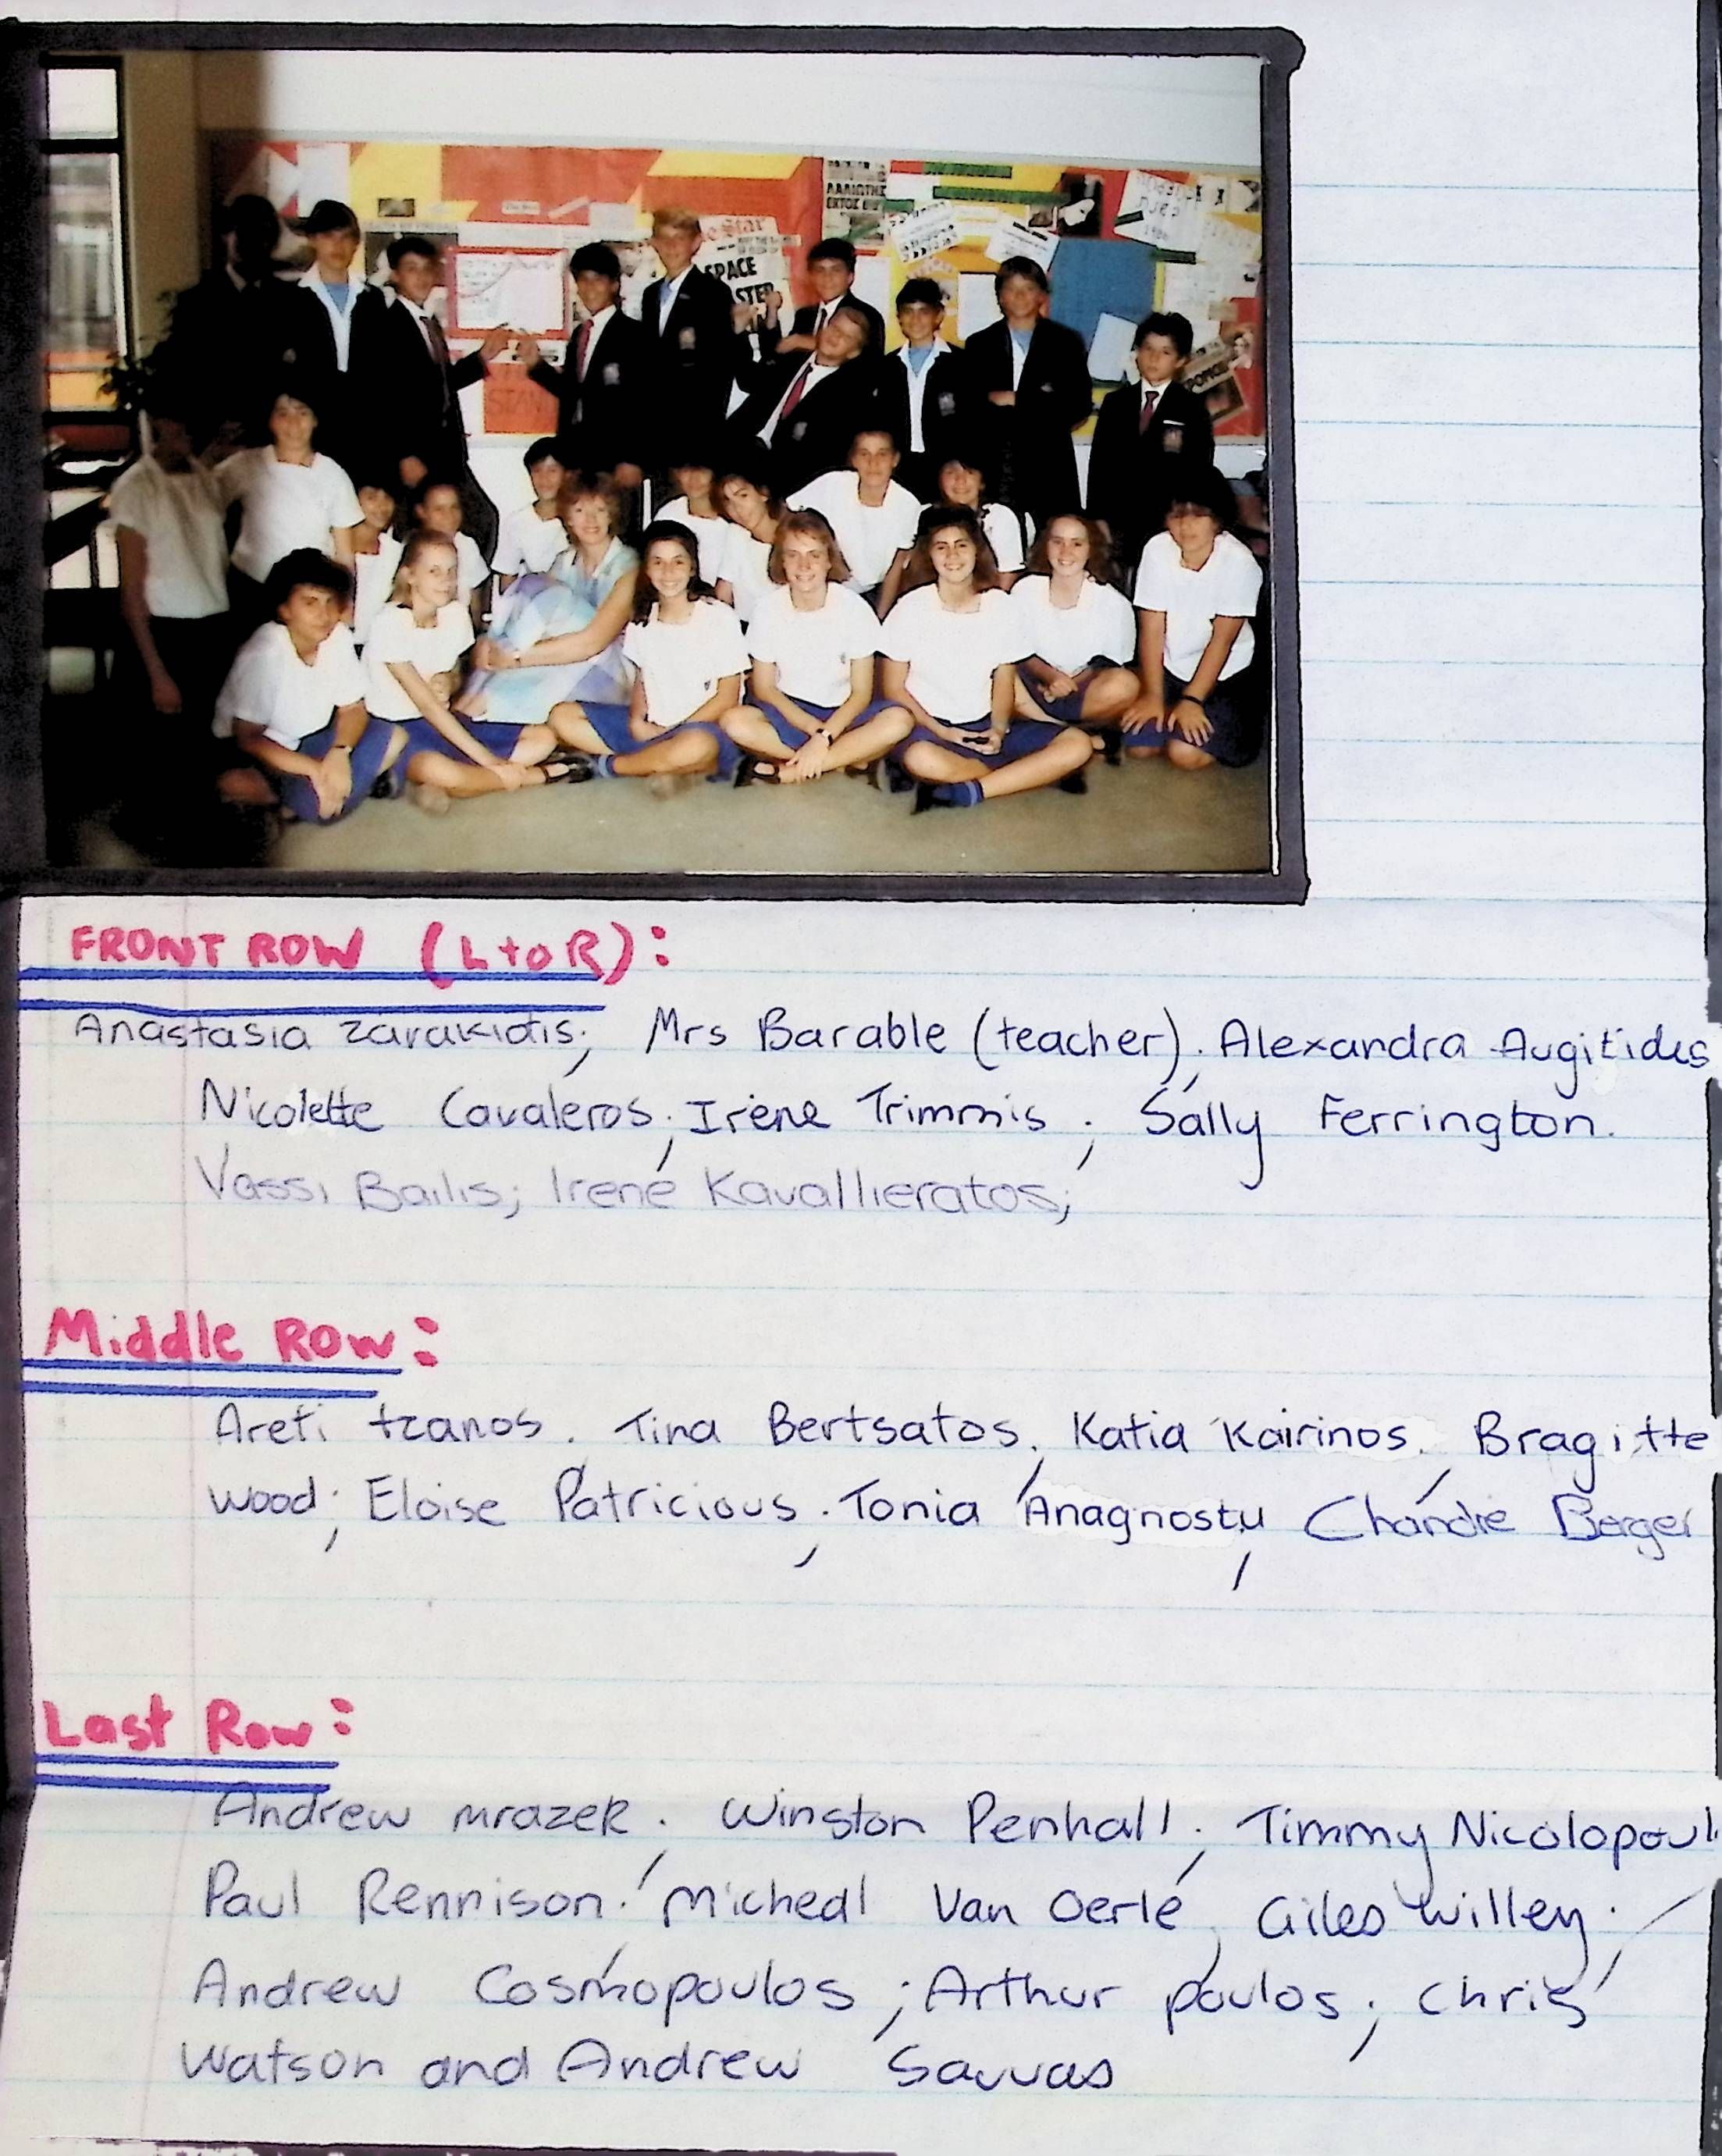 star
SPACE
ΛΑΛΙΩΤΗΣ
ΕΚΤΟΣ
STAN
FRONT ROW (L to R):
Anastasia Zarakidis; Mrs Barable (teacher); Alexandra Augitides
Nicolette Cavaleros; Irene Trimmis; Sally Ferrington.
Vassi Bailis; Irene Kavallieratos;
Middle Row:
Areti tzanos, Tina Bertsatos, Katia Kairinos, Bragitte
wood; Eloise Patricious, Tonia Anagnostu, Chandre Berger
Last Row:
Andrew mrazek; Winston Penhall; Timmy Nicolopoul
Paul Rennison; Michael Van Oerle, Giles Willey;
Andrew Cosmopoulos; Arthur poulos; Chris
Watson and Andrew Savvas